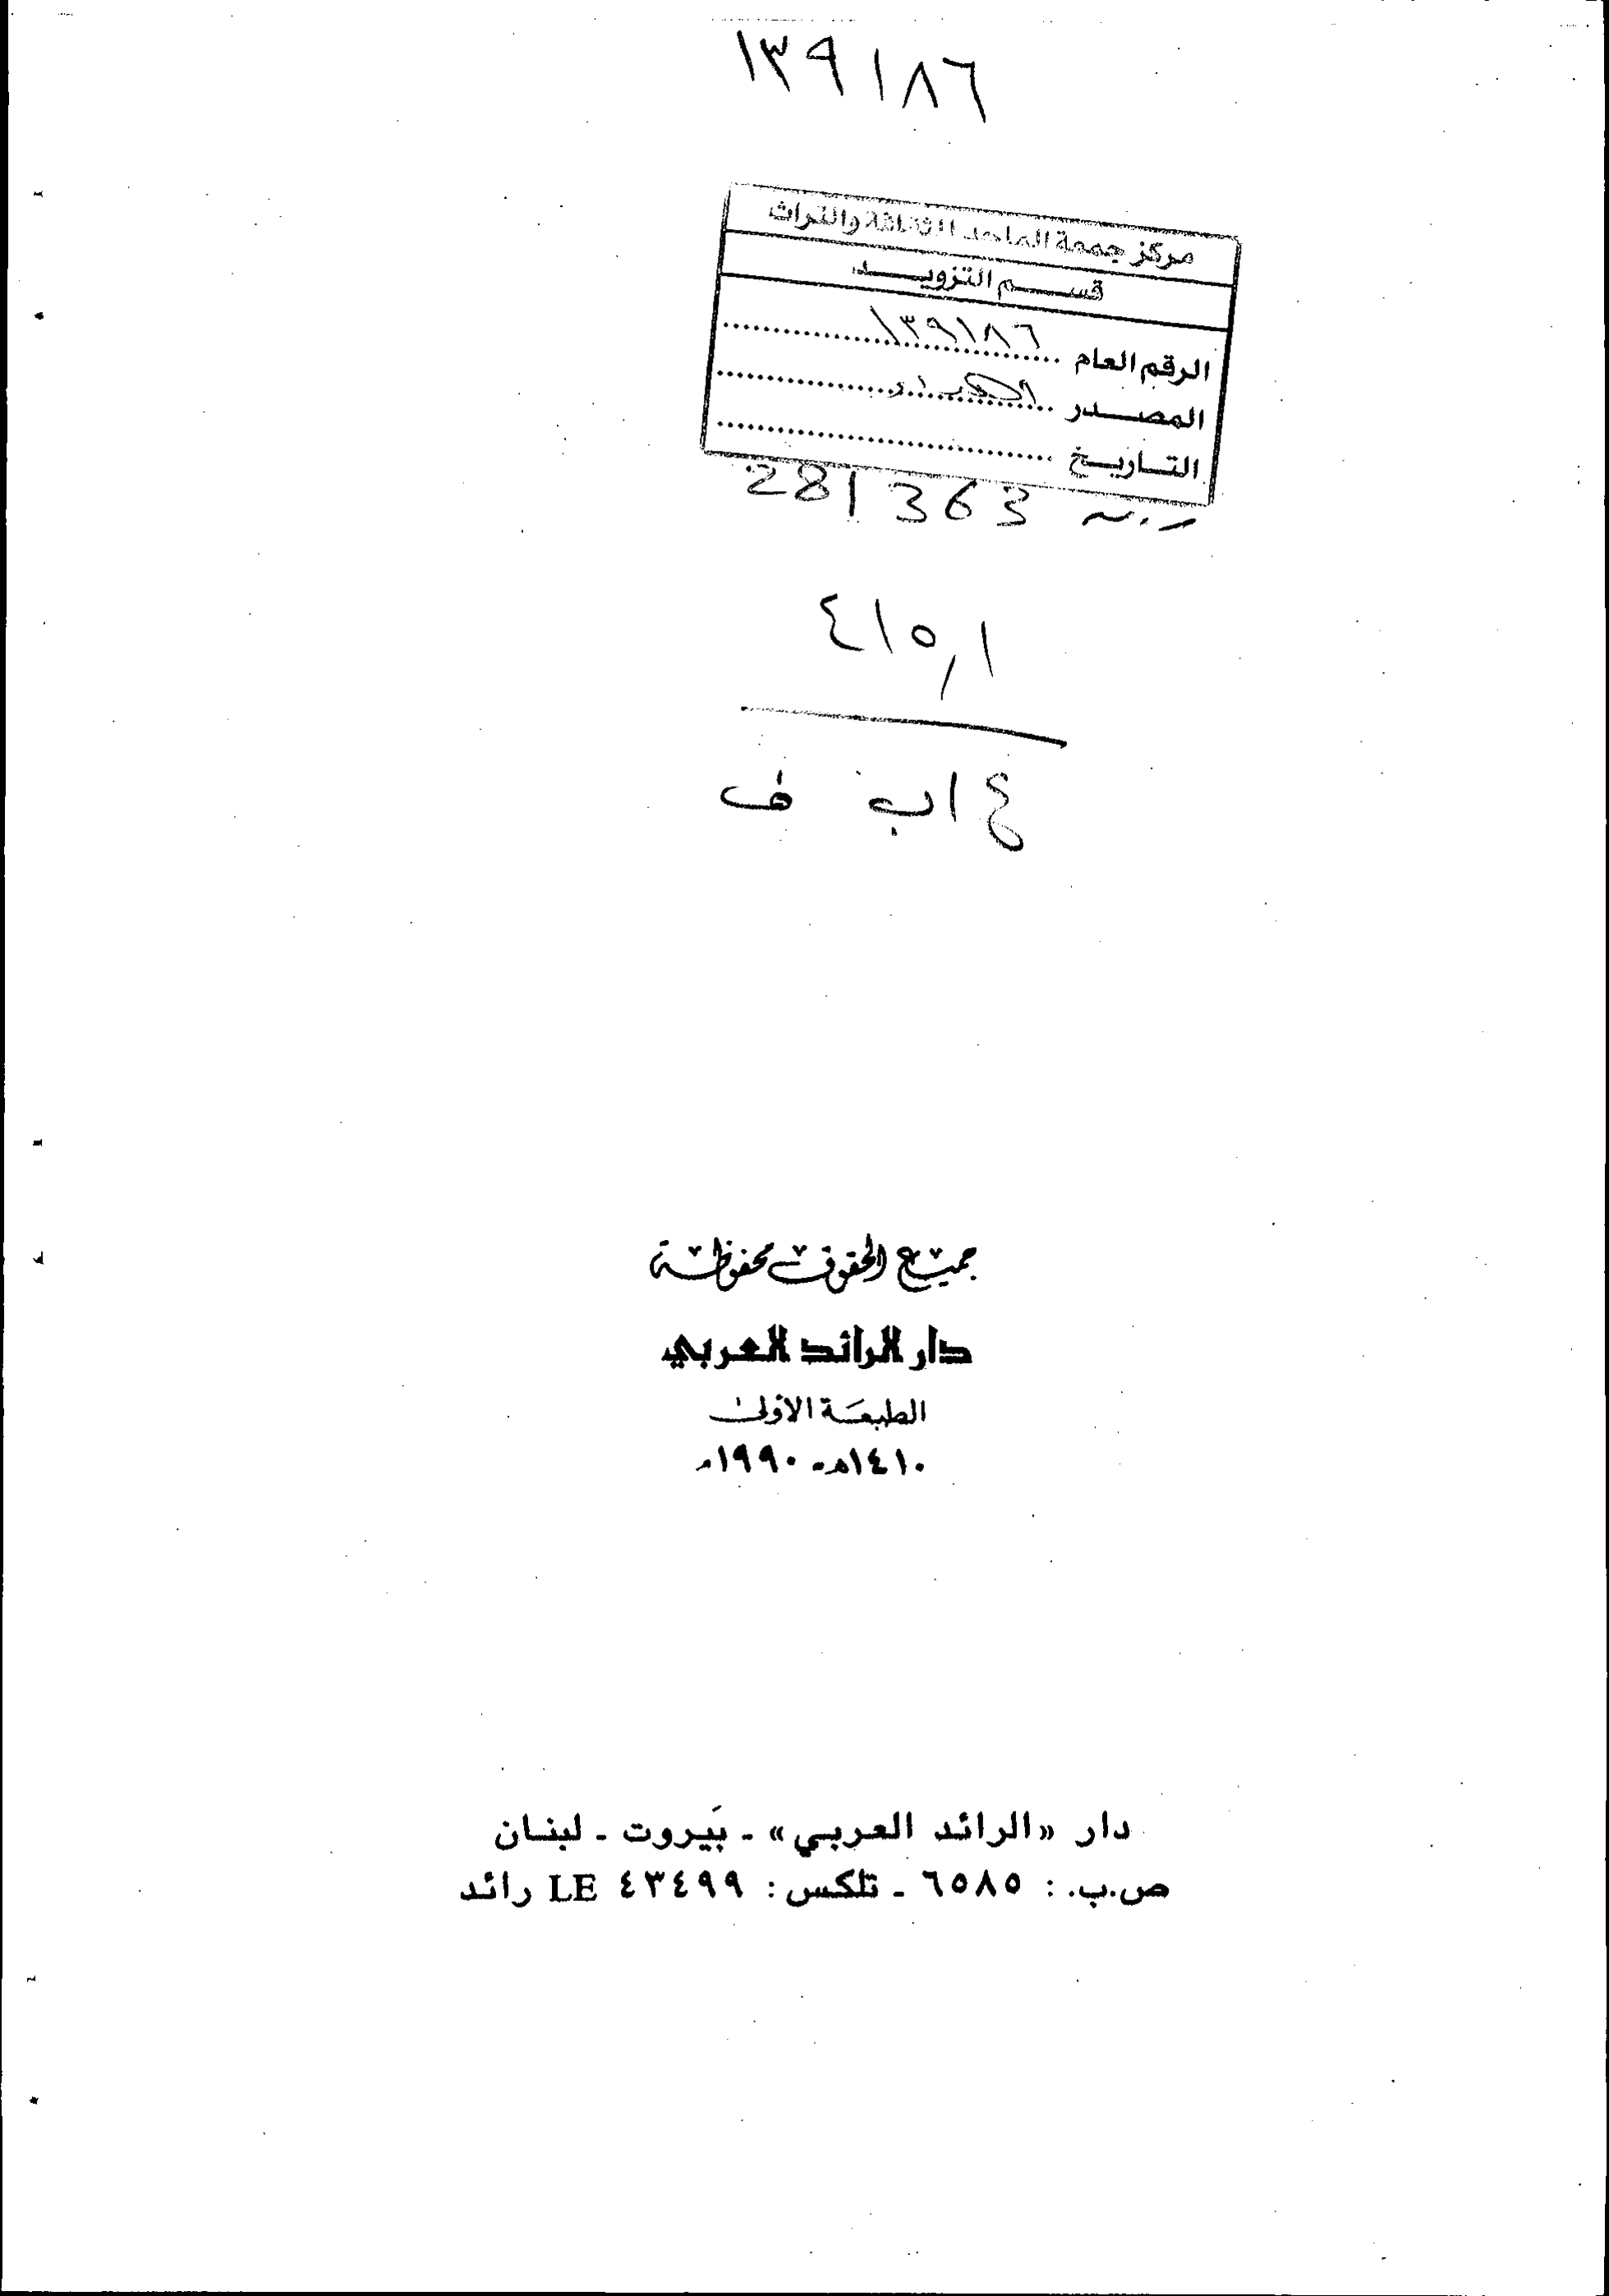 ١٣٩١٨٦
مركز جمعة الماجد للثقافة والتراث
قسم التزويد
الرقم العام ١٣٩١٨٦
المصدر
التاريخ
281363
٤١٥,١
ع ا ب ف
جميع الحقوق محفوظة
دار الرائد العربي
الطبعَة الأولى
١٤١٠هـ - ١٩٩٠م
دار «الرائد العربي» - بَيروت - لبنان
ص.ب. : ٦٥٨٥ - تلكس : ٤٣٤٩٩ LE رائد